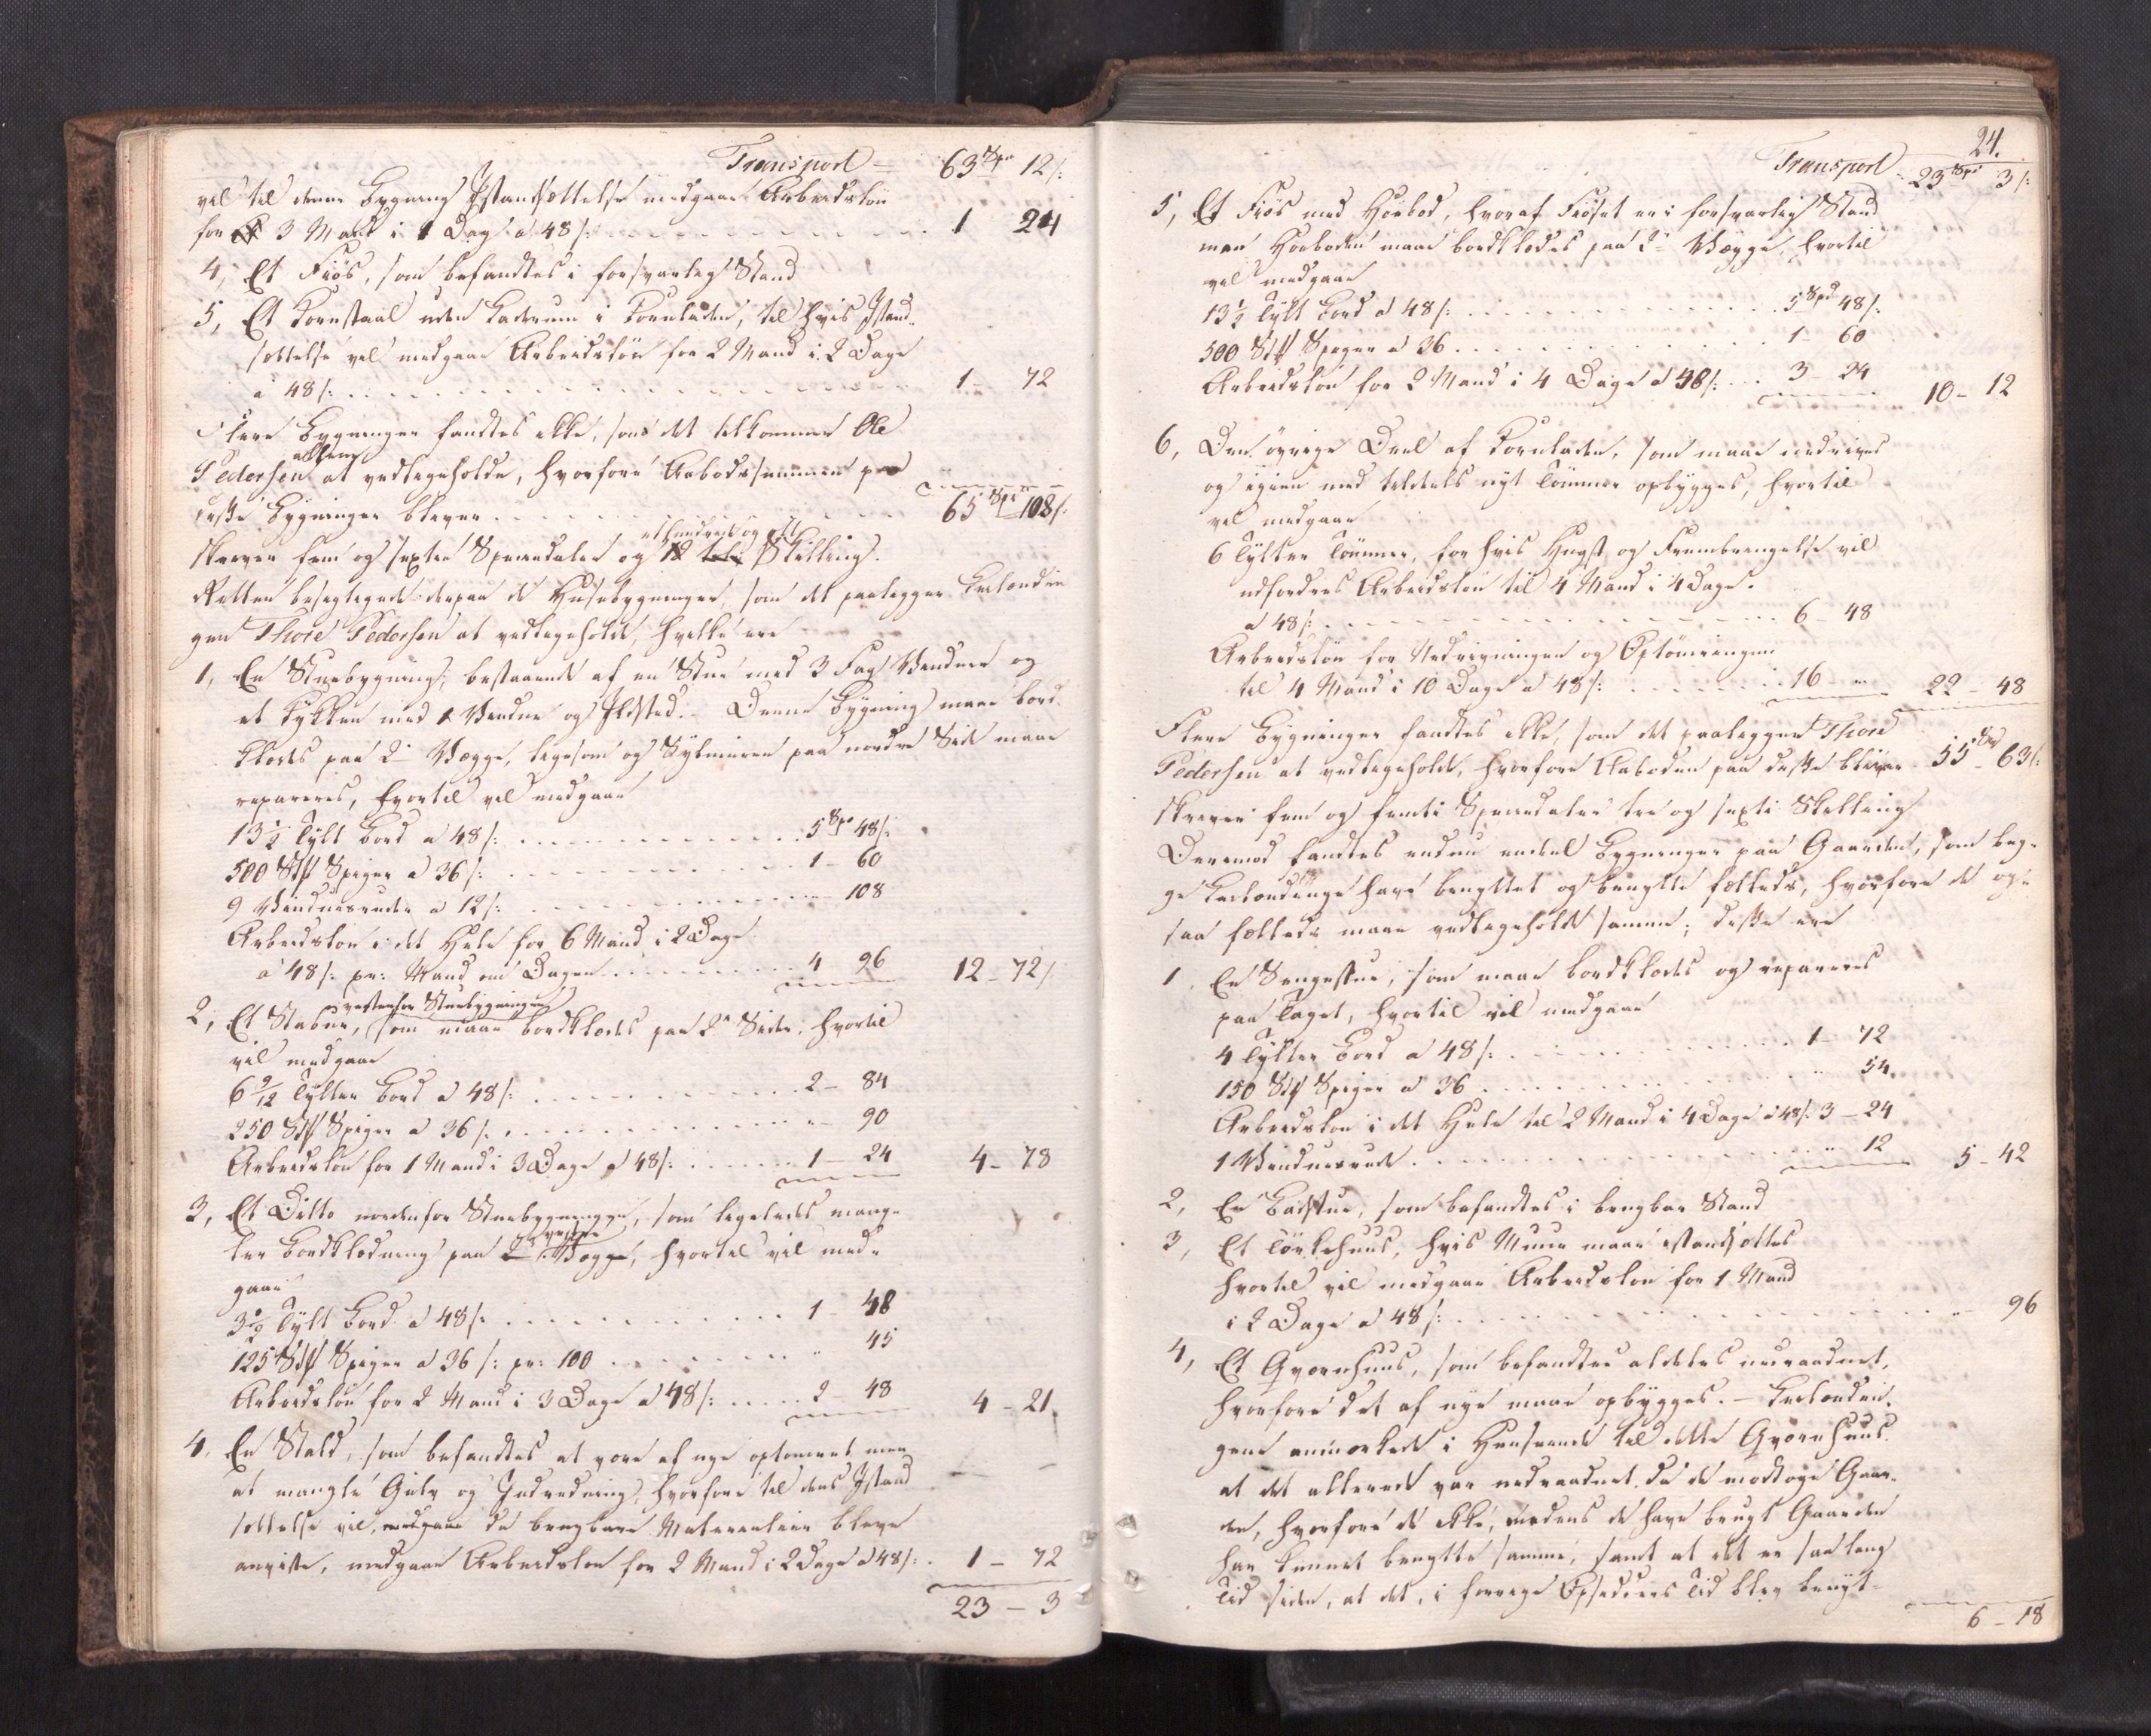 Transport = 63 Spd 12 /:
vil til denne Bygnings Istandsættelse medgaae Arbeidsløn
for 3 Mand i 1 Dag a 48 /: 1 24
4, Et Fiøs, som befandtes i forsvarlig Stand
5, Et Kornstaal uden Laderum i Kornladen, til hvis Istand-
sættelse vil medgaae Arbeidsløn for 2 Mand i 2 Dage
a 48 /: 1 - 72
Flere Bygninger fandtes ikke, som det tilkommer Ole
Pedersen alleene at vedligeholde, hvorfore Aabodssummen paa
disse Bygninger bliver 65 Spd 108 /:
skriver fem og sexti Speciedaler og ethundrede og otte Skilling.
Retten besigtigede derpaa de Huusebygninger, som det paaligger Leilændin
gen Thore Pedersen at vedligeholde, hvilke ere
1, En Stuebygning, bestaaende af en Stue med 3 Fag Vinduer og
et Kjøkken med 1 Vindue og Ildsted. Denne Bygning maae bord-
klædes paa 2de Vægge, ligesom og Syldmuren paa nordre Side maae
repareres, hvortil vil medgaae
13 1/2 Tylt Bord a 48 /: 5 Spd 48 /:
500 Stk Spiger a 36 /: 1 - 60
9 Vinduesruder a 12 /: " - 108
Arbeidsløn i det Hele for 6 Mand i 2 Dage
a 48 /: pr: Mand om Dagen 4 96 12 - 72 /:
2, Et Stabur, vestenfor Stuebygningen som maae bordklædes paa 2de Sider, hvortil
vil medgaae
6 9/12 Tylter Bord a 48 /: 2 - 84
250 Stk Spiger a 36 /: " - 90
Arbeidsløn for 1 Mand i 3 Dage a 48 /: 1 - 24 4 - 78
3, Et Ditto nordenfor Stuebygningen, som ligeledes mang-
ler Bordklædning paa Vægge, hvortil vil med-
gaae
Tylt Bord a 48 /: 1 - 48
125 Stk Spiger a 36 /: pr: 100 " 45
Arbeidsløn for 2 Mand i 3 Dage a 48 /: 2 - 48 4 - 21
4. En Stald, som befandtes at være af nye optømret men
at mangle Gulv og Indredning, hvorfore til dens Istand
sættelse vil, da brugbare Materialier bleve
anviiste, medgaae Arbeidsløn for 2 Mand i 2 Dage a 48 /: 1 - 72
23 - 3
24.
Transport = 23 Spd 3 /:
5, Et Fiøs med Høebod, hvoraf Fiøset er i forsvarlig Stand
men Høeboden maae bordklædes paa 2de Vægge, hvortil
vil medgaae
13 1/2 Tylt Bord a 48 /: 5 Spd 48 /:
500 Stk Spiger a 36 1 - 60
Arbeidsløn for 2 Mand i 4 Dage a 48 /: 3 - 24 10 - 12
6, Den øvrige Deel af Kornladen, som maae nedrives
og igien med tildeels nyt Tømmer opbygges, hvortil
vil medgaae
6 Tylter Tømmer, for hvis Hugst og Frembringelse vil
udfordres Arbeidsløn til 4 Mand i 4 Dage
a 48 /: 6 - 48
Arbeidsløn for Nedrivningen og Optømringen
til 4 Mand i 10 Dage a 48 /: 16 " 22 - 48
Flere Bygninger fandtes ikke, som det paaligger Thore
Pedersen at vedligeholde, hvorfore Aaboden paa disse bliver 55 Spd 63 /:
skriver fem og femti Speciedaler tre og sexti Skilling
Derimod fandtes endnu endeel Bygninger paa Gaarden, som beg-
ge Leilændinge have benyttet og benytte fælleds, hvorfore de og-
saa fælleds maae vedligeholde samme; disse ere
1. En Sengestue, som maae bordklædes og repareres
paa Taget, hvortil vil medgaae
4 Tylter Bord a 48 /: 1 - 72
150 Stk Spiger a 36 " 54.
Arbeidsløn i det Hele til 2 Mand i 4 Dage a 48 /: 3 - 24
1 Vinduesrude " 12 5 - 42
2, En Badstue, som befandtes i brugbar Stand
3, Et Tørkehuus, hvis Muur maae istandsættes
hvortil vil medgaae Arbeidsløn for 1 Mand
i 2 Dage a 48 /: " - 96
4, Et Qværnhuus, som befandtes aldeles nedraadnet,
hvorfore det af nye maae opbygges. - Leilændin-
gene anmærkede i Henseende til dette Qværnhuus
at det allerede var nedraadnet da de modtoge Gaar-
den, hvorfore de ikke, medens de have brugt Gaarden
har kunnet benytte samme, samt at det er saa lang
Tid siden, at det, i forrige Opsidders Tid blev benyt-
6 - 18